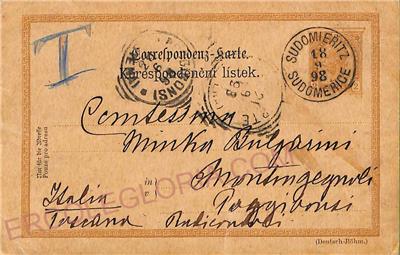 T
Correspondenz-Karte.
Korespondenční lístek.
SUDOMIEŘITZ
18
98
SUDOMĚŘICE
Contessina
Minka Bulgaini
in
Montingegnoli
Poggibonsi
Italia
Toscana Radicondoli
Nur für die Adresse
Pouze pro adresu
(Deutsch-Böhm.)